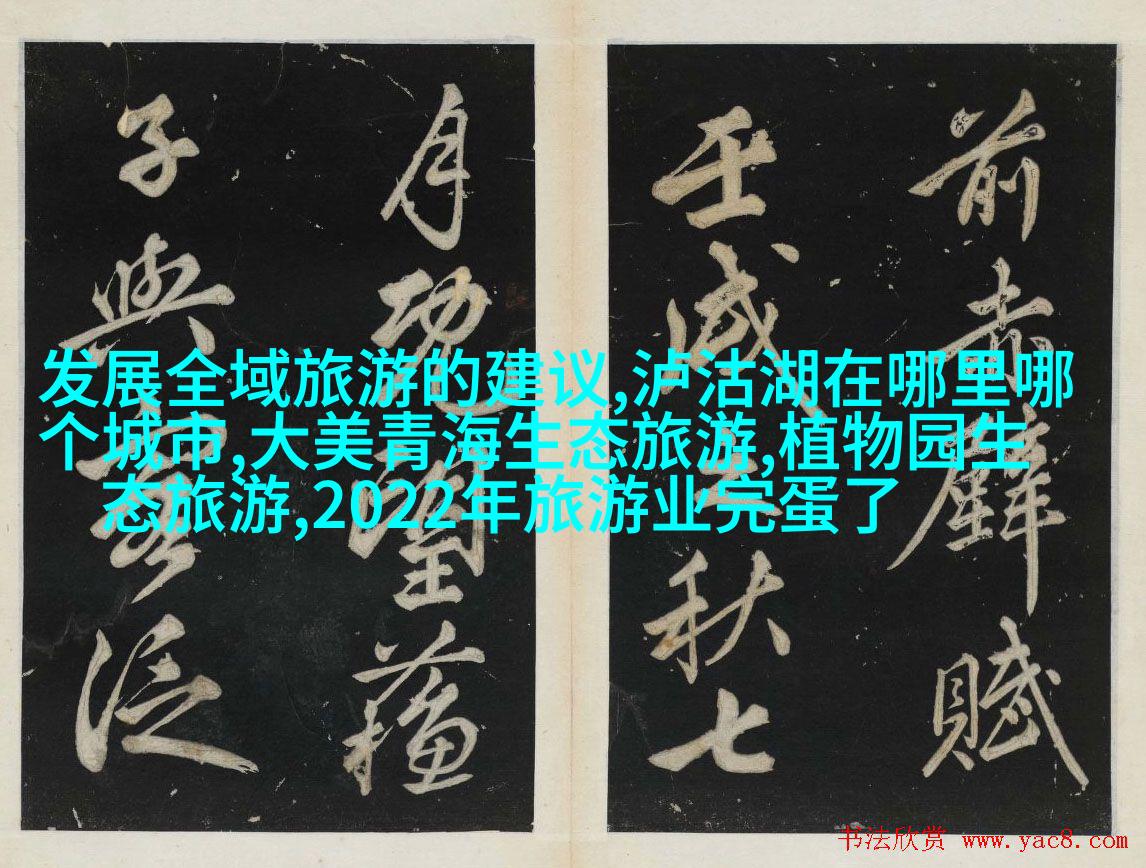 发展全域旅游的建议,泸沽湖在哪里哪
个城市,大美青海生态旅游,植物园生
态旅游,2022年旅游业完蛋了
前赤壁賦
壬戌之秋七
月既望蘓
子與客泛
书法欣赏 www.yac8.com